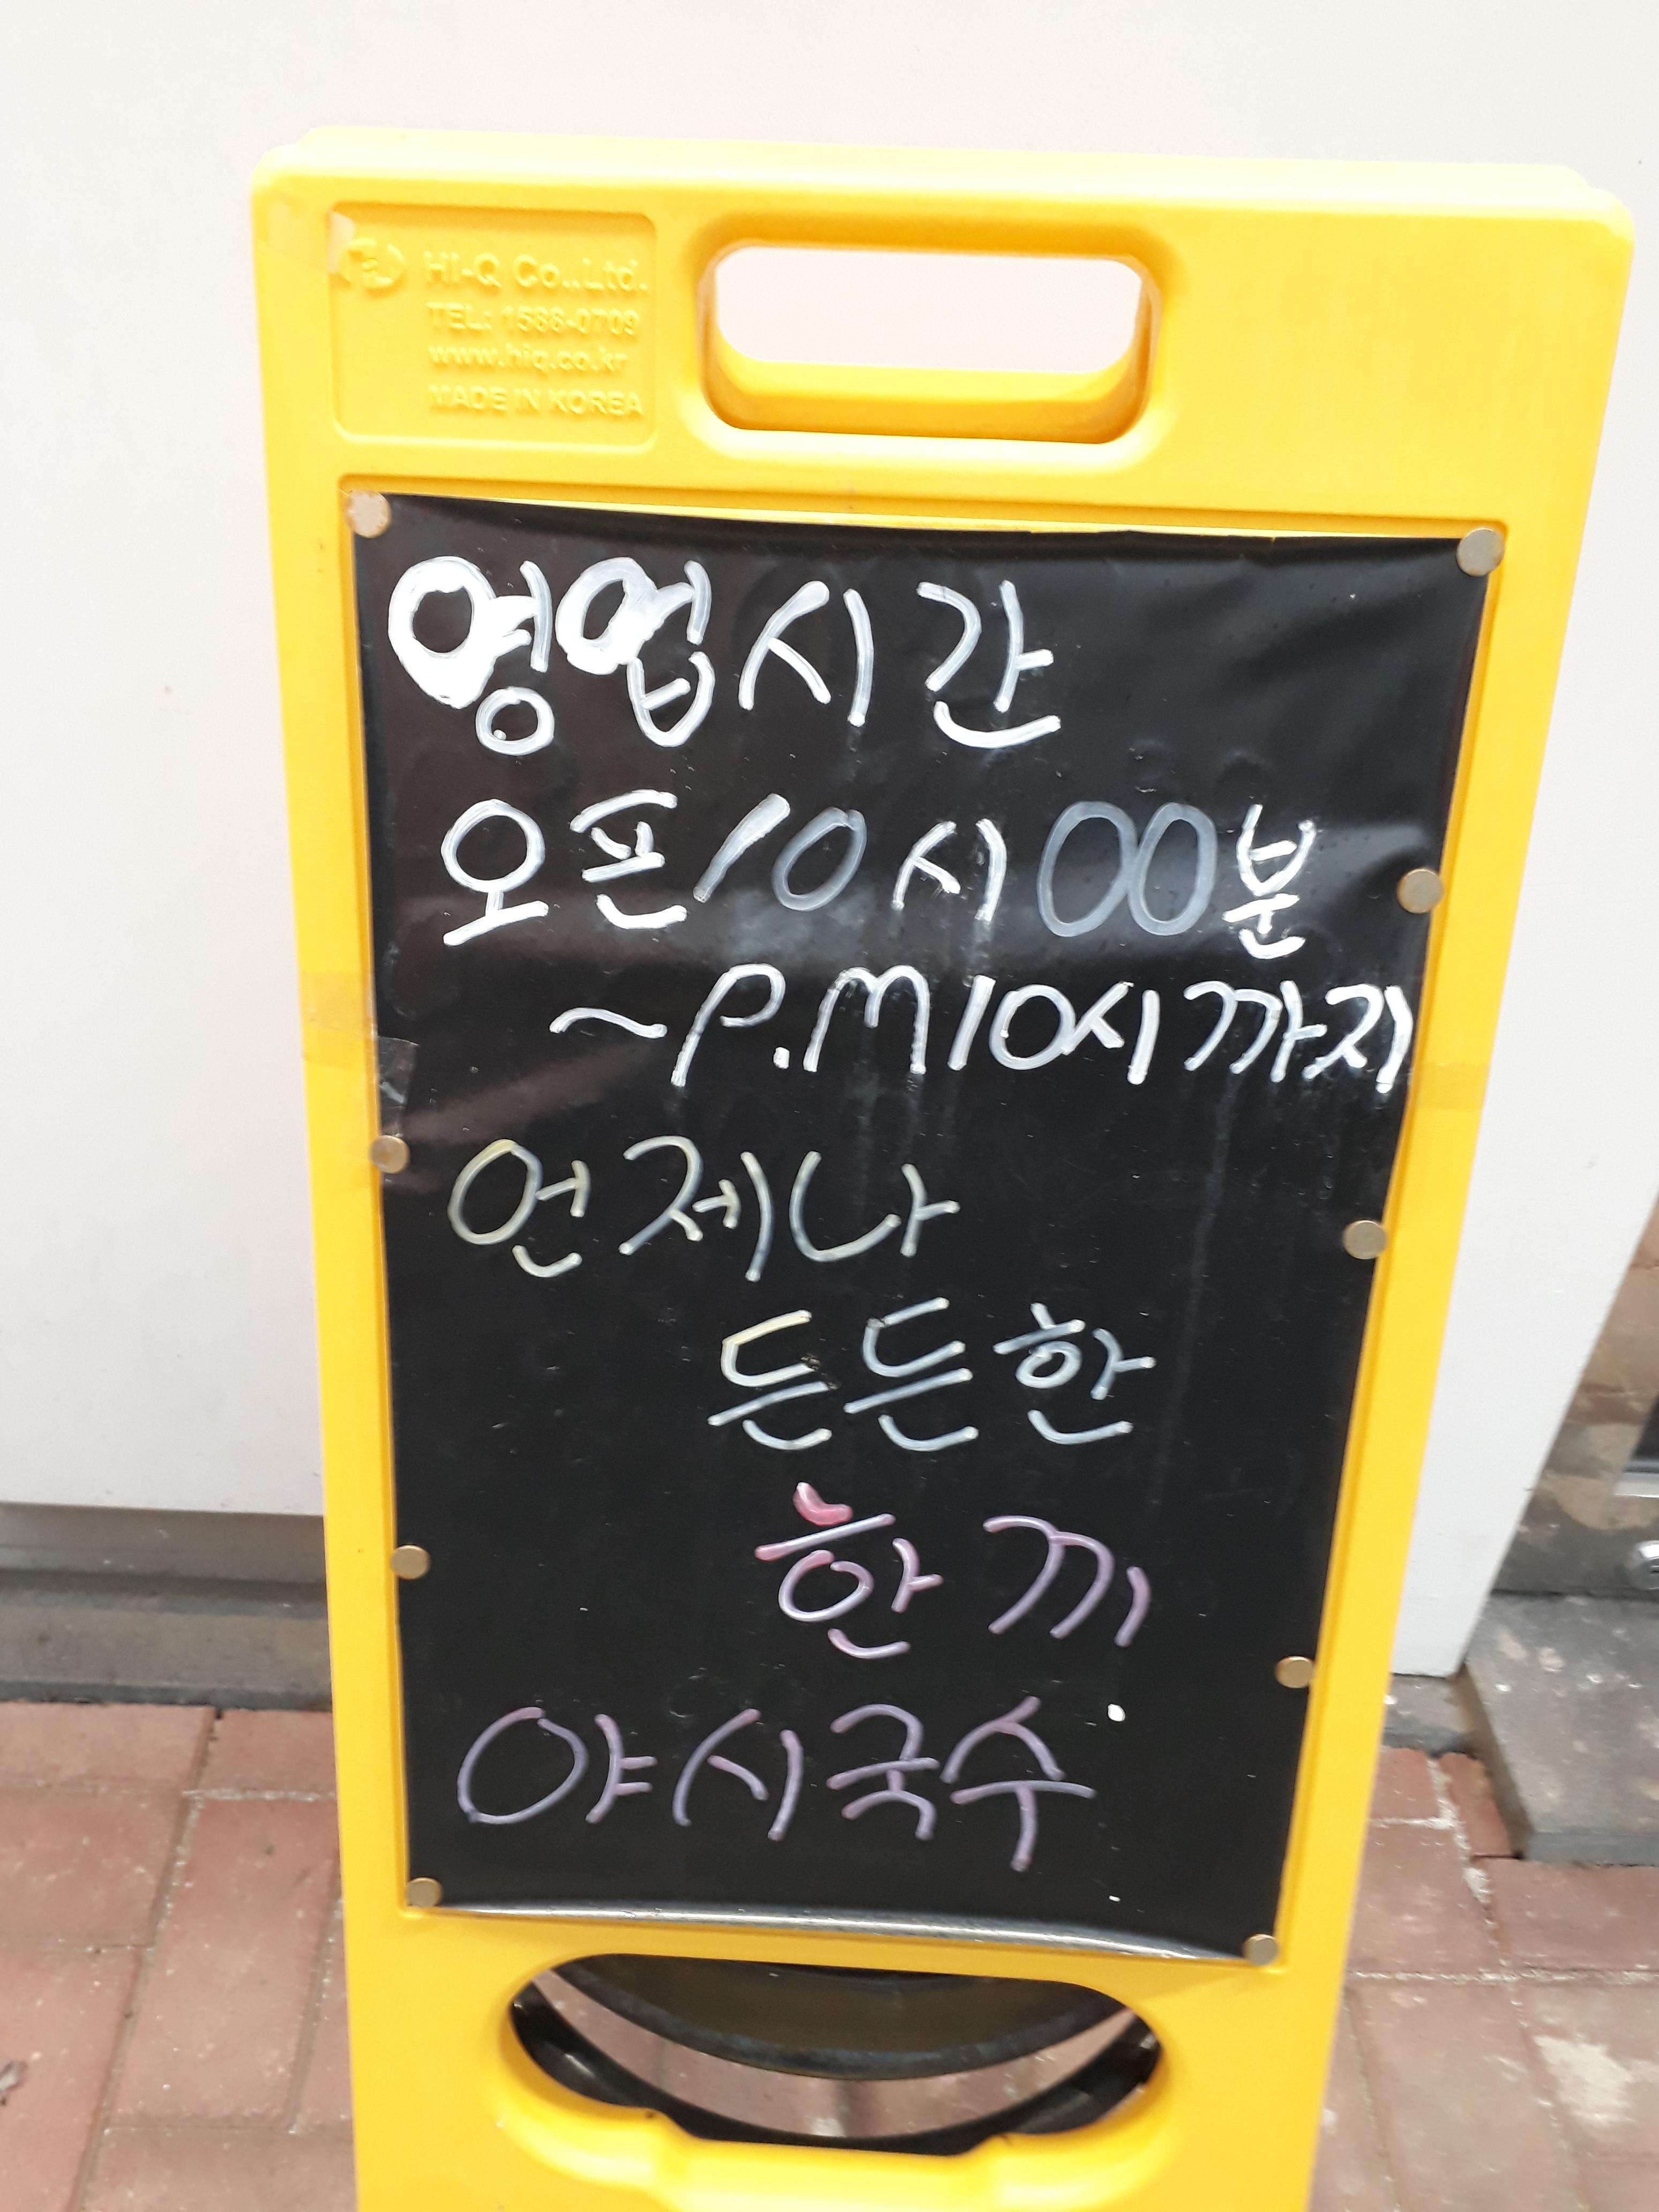 HI-Q Co.,Ltd.
TEL: 1588-0709
www.hiq.co.kr
MADE IN KOREA
영업시간
오픈10시00분
~P.M10시까지
언제나
든든한
한끼
야시국수